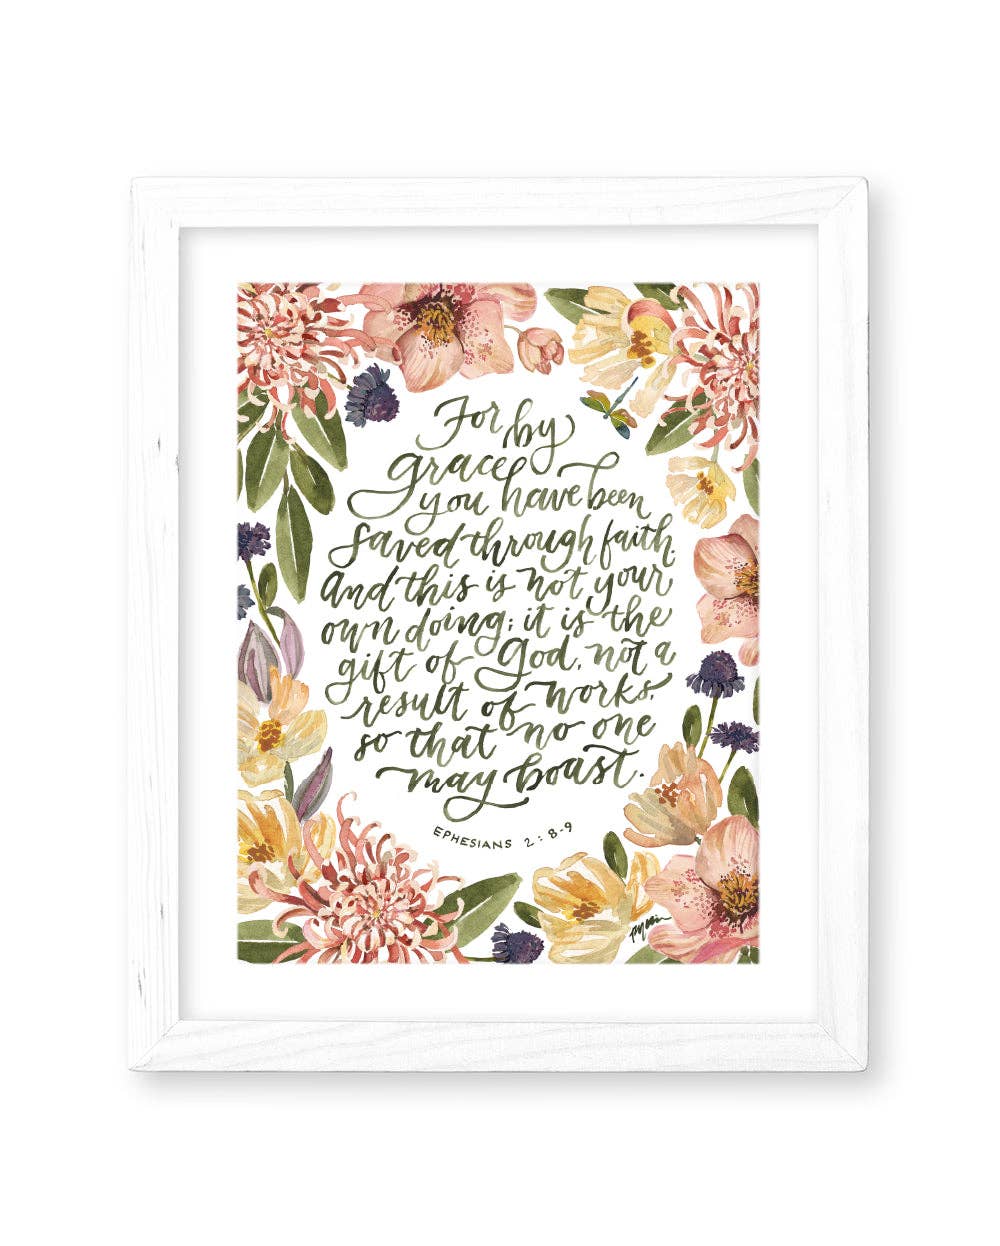 For by
grace
you have been
saved through faith.
And this is not your
own doing; it is the
gift of God, not a
result of works,
so that no one
may boast.
EPHESIANS 2:8-9